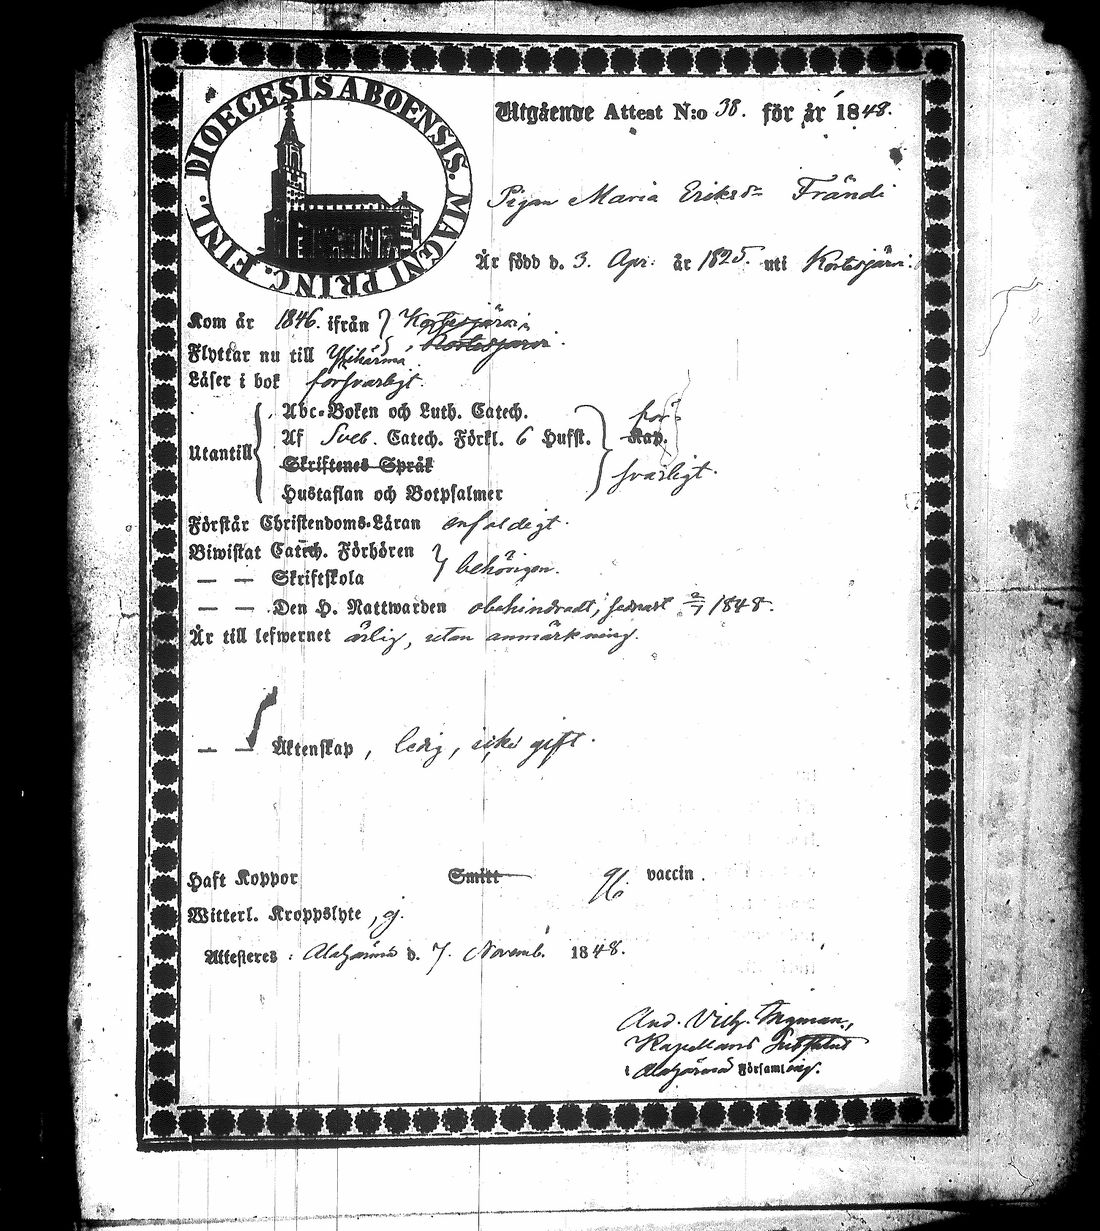 DIOECESIS ABOENSIS. MAGNI PRINC. FINL.
Utgående Attest N:o 38. för år 1848.
Pigan Maria Eriksdr Frändi
Är född d. 3. Apr. år 1825. uti Kortesjärvi.
Kom år 1846. ifrån Kortesjärvi
Flyttar nu till Ylihärmä, Kortesjärvi.
Läser i bok försvarligt.
Utantill
Abc-Boken och Luth. Catech.
Af Sveb. Catech. Förkl. 6 Hufst. Kap.
Skriftenes Språk
Hustaflan och Botpsalmer
för-
svarligt.
Förstår Christendoms-Läran enfaldigt.
Biwistat Catech. Förhören
— — Skriftskola
behörigen.
— — Den H. Nattwarden obehindradt, sednast 1848.
Är till lefwernet ärlig, utan anmärkning.
— — Äktenskap, ledig, icke gift.
Haft Koppor Smitt vaccin.
Witterl. Kroppslyte, ej.
Attesteres: Alahärmä d. 7. Novemb. 1848.
And. Vilh. Ingman,
Kapellans Substitut
i Alahärmä Församling.